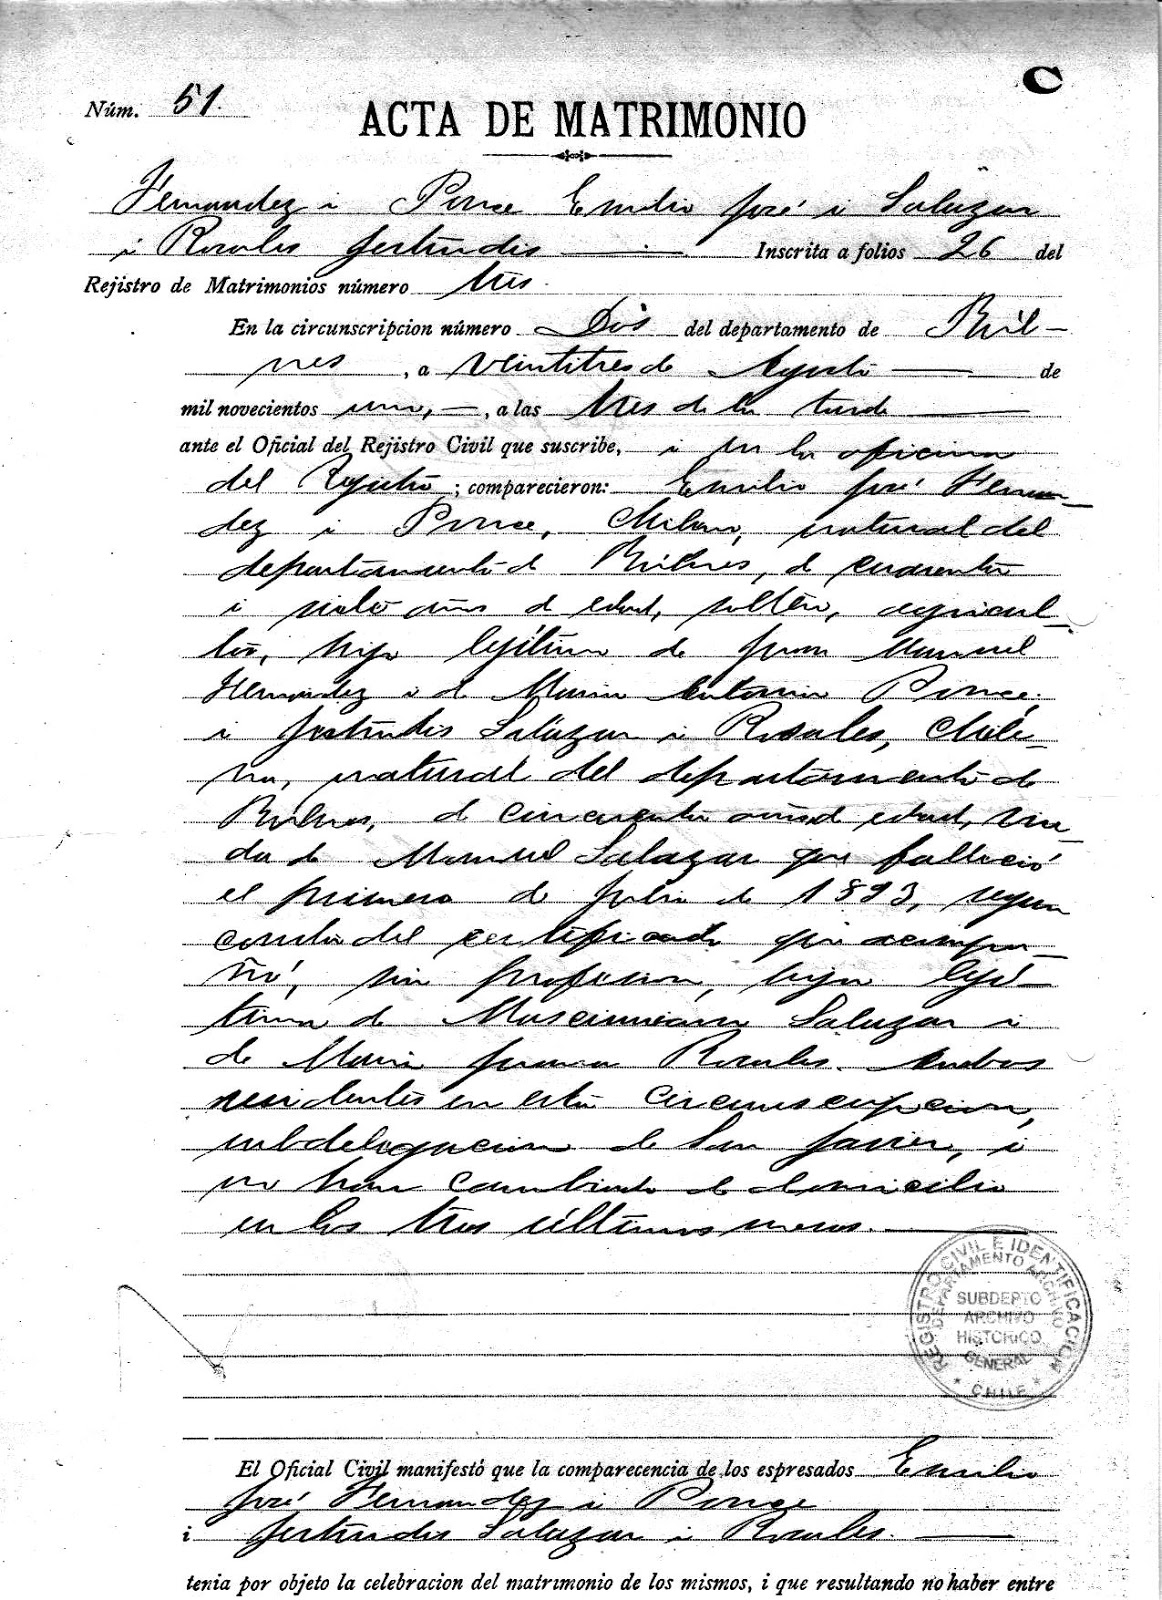 C
Núm. 51.
ACTA DE MATRIMONIO
Fernandez i Ponce Emilio José i Salazar
i Rosales Jertrudis — Inscrita a folios 26 del
Rejistro de Matrimonios número tres.
En la circunscripcion número Dos del departamento de Búl-
nes, a veintitres de Agosto — de
mil novecientos uno, —, a las tres de la tarde —
ante el Oficial del Rejistro Civil que suscribe, i en la oficina
del Rejistro; comparecieron: Emilio José Fernan-
dez i Ponce, chileno, natural del
departamento de Búlnes, de cuarenta
i siete años de edad, soltero, agricul-
tor, hijo lejítimo de Juan Manuel
Fernandez i de Maria Antonia Ponce.
i Jertrudis Salazar i Rosales, chile-
na, natural del departamento de
Bulnes, de cincuenta años de edad, viu-
da de Manuel Salazar que falleció
el primero de Julio de 1893, segun
consta del certificado que acompa-
ñó, sin profesion, hija lejí-
tima de Salazar i
de Maria Juana Rosales. Ambos
residentes en esta circunscripcion,
subdelegacion de San Javier, i
no han cambiado de domicilio
en los tres últimos meses. —
REGISTRO CIVIL E IDENTIFICACION
DEPARTAMENTO ARCHIVO
SUBDEPTO
ARCHIVO
HISTORICO
GENERAL
* CHILE *
El Oficial Civil manifestó que la comparecencia de los espresados Emilio
José Fernandez i Ponce
i Jertrudis Salazar i Rosales. —
tenia por objeto la celebracion del matrimonio de los mismos, i que resultando no haber entre